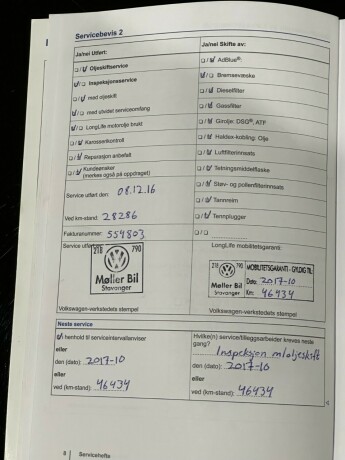 Servicebevis 2
Ja/nei Utført:
Ja/nei Skifte av:
Oljeskiftservice
AdBlue®:
Inspeksjonsservice
Bremsevæske
med oljeskift
Dieselfilter
med utvidet serviceomfang
Gassfilter
LongLife motorolje brukt
Girolje: DSG®, ATF
Karosserikontroll
Haldex-kobling: Olje
Reparasjon anbefalt
Luftfilterinnsats
Kundeønsker
(merkes også på oppdraget)
Tetningsmiddelflaske
Støv- og pollenfilterinnsats
Service utført den: 08.12.16
Tannreim
Ved km-stand: 28286
Tennplugger
Fakturanummer: 554803
Service utført
LongLife mobilitetsgaranti:
218 790
Møller Bil
Stavanger
218 790
Møller Bil
Stavanger
MOBILITETSGARANTI - GYLDIG TIL:
Dato: 2017-10
Km: 46434
Volkswagen-verkstedets stempel
Volkswagen-verkstedets stempel
Neste service
i henhold til serviceintervallanviser
eller
den (dato): 2017-10
eller
ved (km-stand): 46434
Hvilke(n) service/tilleggsarbeider kreves neste
gang? Inspeksjon m/oljeskift
den (dato): 2017-10
eller
ved (km-stand): 46434
6 Servicehefte